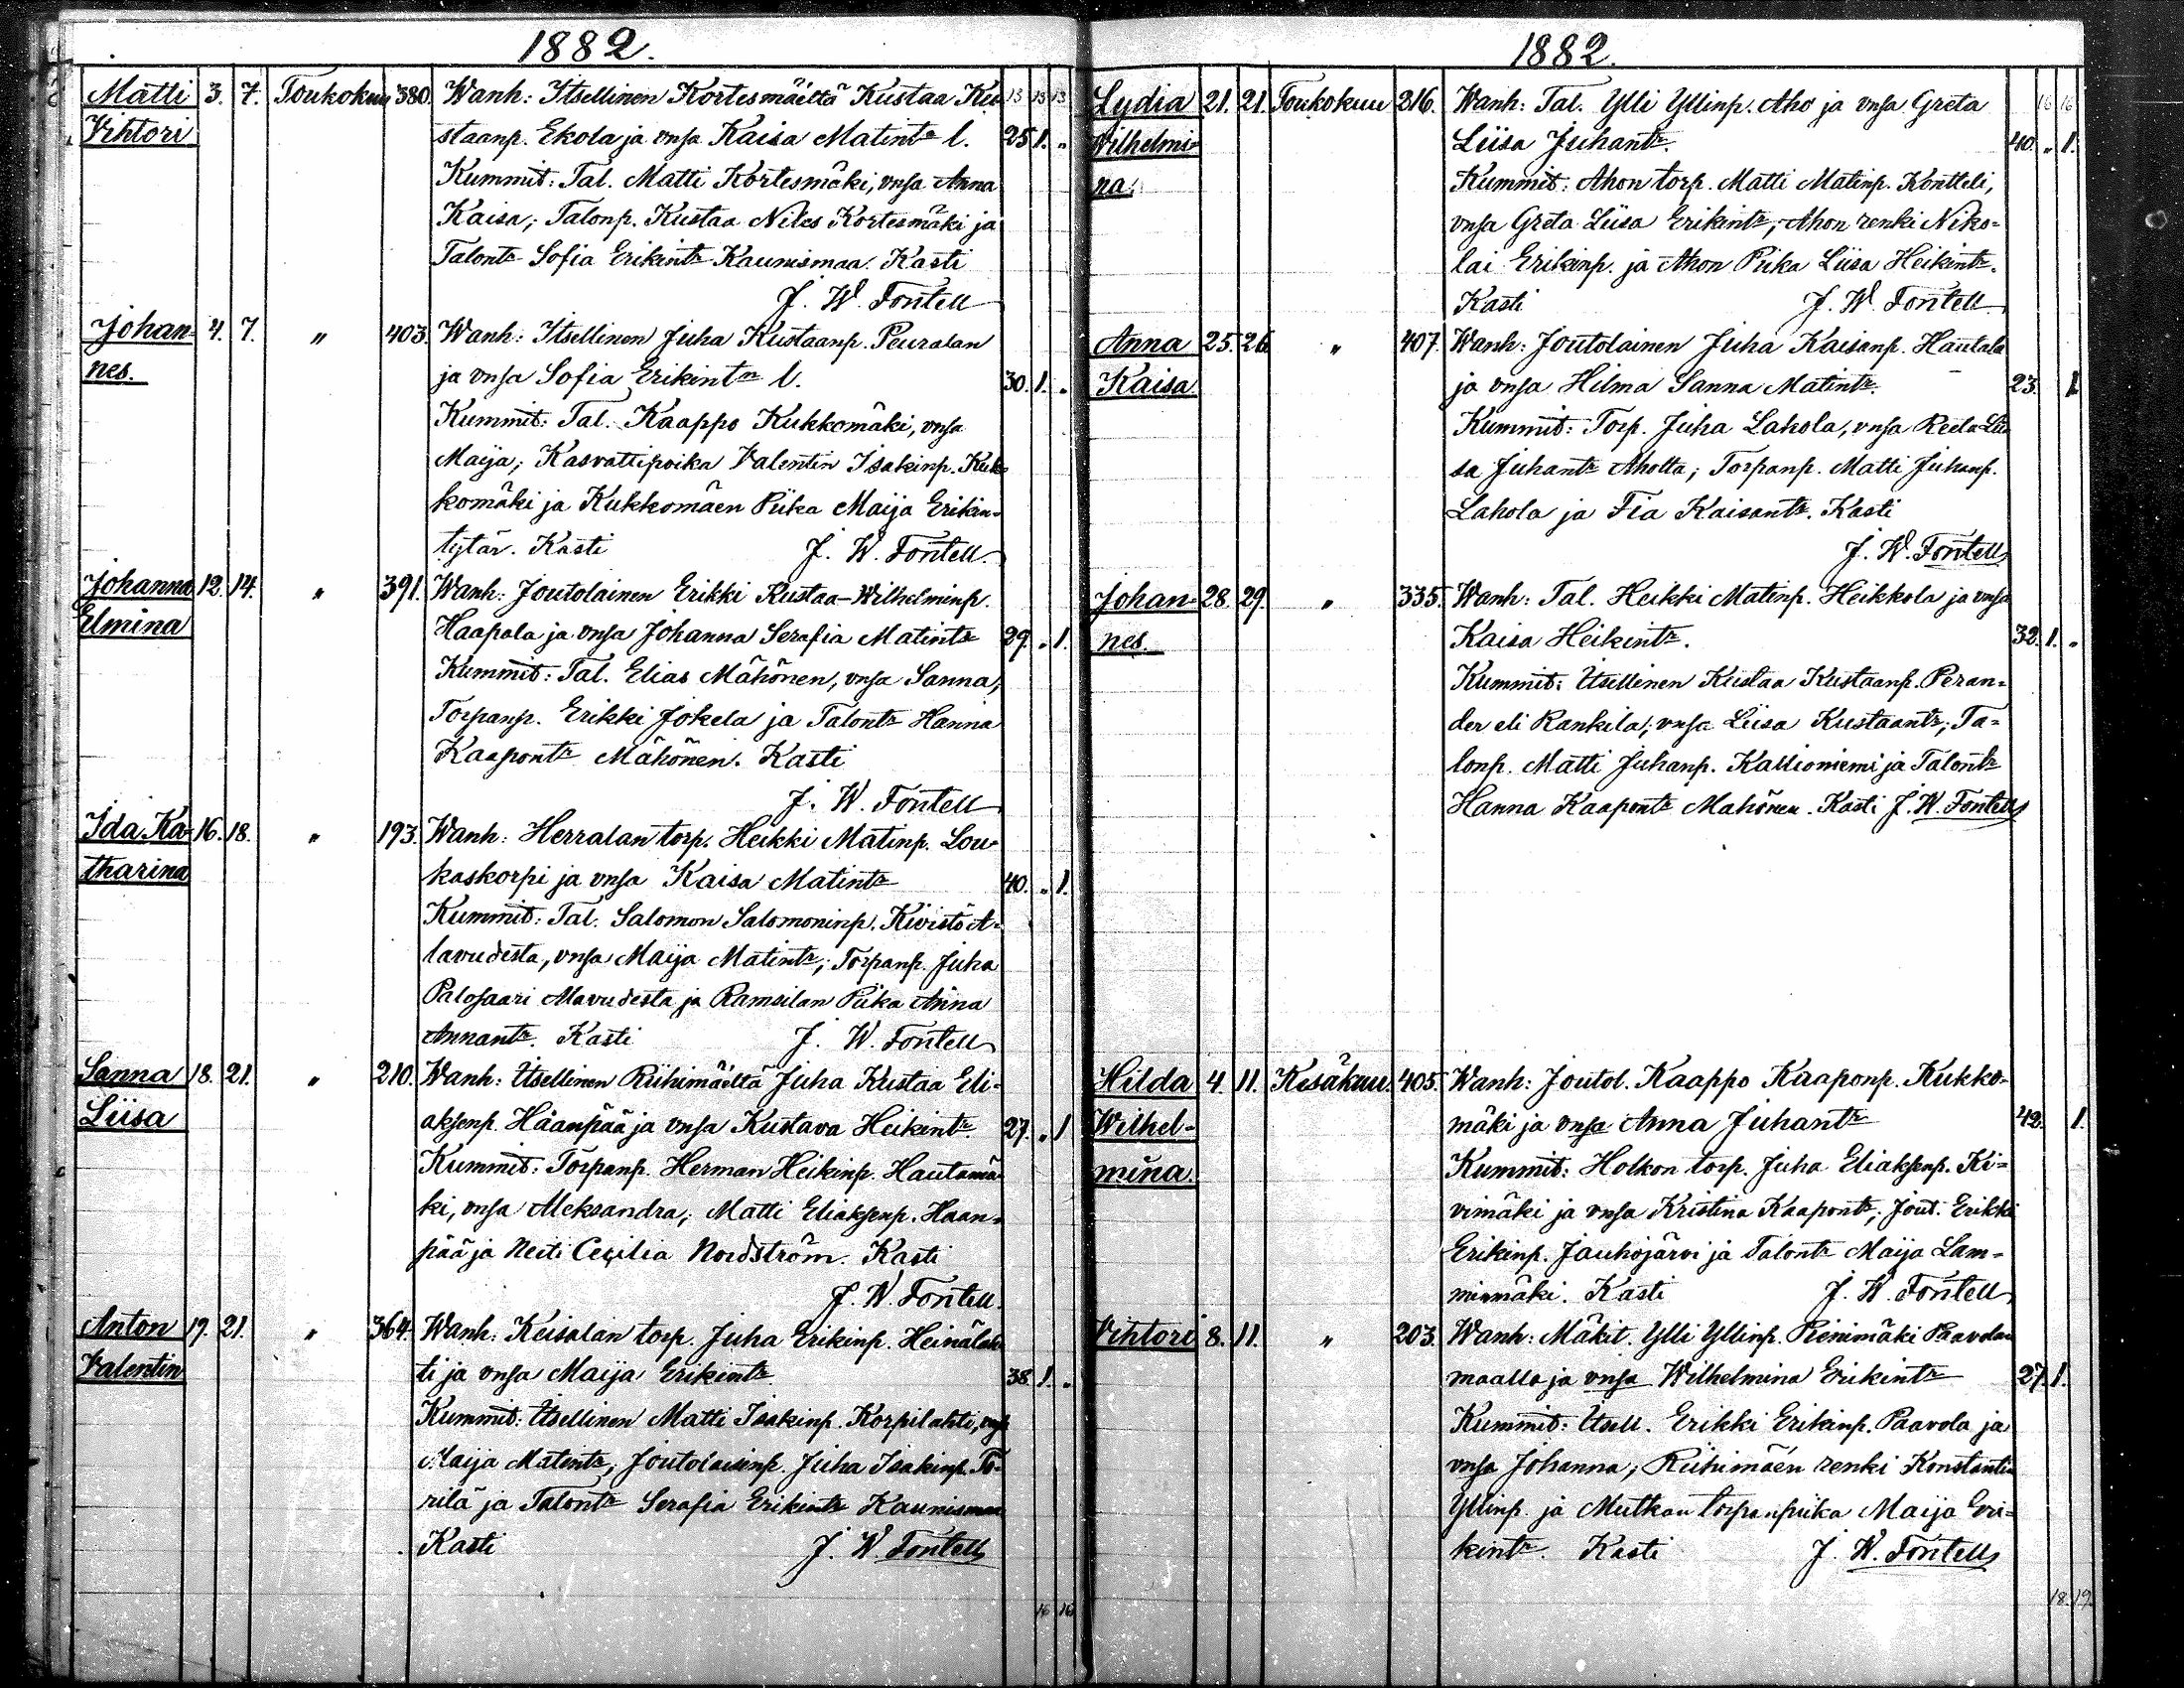 1882.
Matti 3. 7. Toukokuu 380. Wanh: Itsellinen Kortesmäeltä Kustaa Ku- 13 13 13
Vihtori staanp. Ekola ja vmsa Kaisa Matintr l. 25 1. „
Kummit: Tal. Matti Kortesmäki, vmsa Anna
Kaisa; Talonp. Kustaa Niles Kortesmäki ja
Talontr Sofia Erikintr Kaunismaa. Kasti
J. W. Fontell
Johan- 4. 7. „ 403. Wanh: Itsellinen Juha Kustaanp. Peuralan
nes. ja vmsa Sofia Erikintr l. 30. 1. „
Kummit: Tal. Kaappo Kukkomäki, vmsa
Maija; Kasvattipoika Valentin Isakinp. Kuk-
komäki ja Kukkomäen Piika Maija Erikin-
tytär. Kasti J. W. Fontell.
Johanna 12. 14. „ 391. Wanh: Joutolainen Erikki Kustaa-Wilhelminp.
Elmina Haapala ja vmsa Johanna Serafia Matintr 29. „ 1.
Kummit: Tal. Elias Mähönen, vmsa Sanna,
Torpanp. Erikki Jokela ja Talontr Hanna
Kaapontr Mähönen. Kasti
J. W. Fontell
Ida Ka- 16. 18. „ 193. Wanh: Herralan torp. Heikki Matinp. Lou-
tharina kaskorpi ja vmsa Kaisa Matintr 40. „ 1.
Kummit: Tal. Salomon Salomoninp. Kivistö A-
lavudesta, vmsa Maija Matintr; Torpanp. Juha
Palosaari Alavudesta ja Ramsilan Piika Anna
Annantr. Kasti J. W. Fontell
Sanna 18. 21. „ 210. Wanh: Itsellinen Riihimäeltä Juha Kustaa Eli-
Liisa aksenp. Haanpää ja vmsa Kustava Heikintr. 27. „ 1
Kummit: Torpanp. Herman Heikinp. Hautamä-
ki, vmsa Aleksandra; Matti Eliaksenp. Haan-
pää ja Neiti Cecilia Nordström. Kasti
J. W. Fontell.
Anton 19. 21. „ 364. Wanh: Keisalan torp. Juha Erikinp. Heinälah-
Valentin ti ja vmsa Maija Erikintr. 38 1. „
Kummit: Itsellinen Matti Isakinp. Korpilahti, vmsa
Maija Matintr; Joutolaisenp. Juha Isakinp. Tö-
rilä ja Talontr Serafia Erikintr Kaunismaa
Kasti J. W. Fontell
16 16
1882.
Lydia 21. 21. Toukokuu 216. Wanh: Tal. Ylli Yllinp. Aho ja vmsa Greta 16 16
Wilhelmi- Liisa Juhantr. 40. „ 1.
na. Kummit: Ahon torp. Matti Matinp. Kontteli,
vmsa Greta Liisa Erikintr; Ahon renki Niko-
lai Erikinp. ja Ahon Piika Liisa Heikintr.
Kasti J. W. Fontell
Anna 25. 26. „ 407. Wanh: Joutolainen Juha Kaisanp. Hautala
Kaisa. ja vmsa Hilma Sanna Matintr. 23. 1.
Kummit: Torp. Juha Lahola, vmsa Reeta Lii-
sa Juhantr Aholta; Torpanp. Matti Juhanp.
Lahola ja Fia Kaisantr. Kasti
J. W. Fontell
Johan- 28. 29. „ 335. Wanh: Tal. Heikki Matinp. Heikkola ja vmsa
nes. Kaisa Heikintr. 32. 1. „
Kummit: Itsellinen Kustaa Kustaanp. Peran-
der eli Rankila; vmsa Liisa Kustaantr; Ta-
lonp. Matti Juhanp. Kallioniemi ja Talontr
Hanna Kaapontr Mähönen. Kasti J. W. Fontell
Hilda 4. 11. Kesäkuu. 405. Wanh: Joutol. Kaappo Kaaponp. Kukko-
Wilhel- mäki ja vmsa Anna Juhantr 42. 1.
mina. Kummit: Holkon torp. Juha Eliaksenp. Ki-
vimäki ja vmsa Kristina Kaapontr; Jout. Erikki
Erikinp. Jauhojärvi ja Talontr Maija Lam-
minmäki. Kasti J. W. Fontell
Vihtori 8. 11. „ 203. Wanh: Mäkit. Ylli Yllinp. Pienimäki Paavolan
maalla ja vmsa Wilhelmina Erikintr 27. 1.
Kummit: Itsell. Erikki Erikinp. Paavola ja
vmsa Johanna; Riihimäen renki Konstantin
Yllinp. ja Mutkan torpanpiika Maija Eri-
kintr. Kasti J. W. Fontell
18. 19.